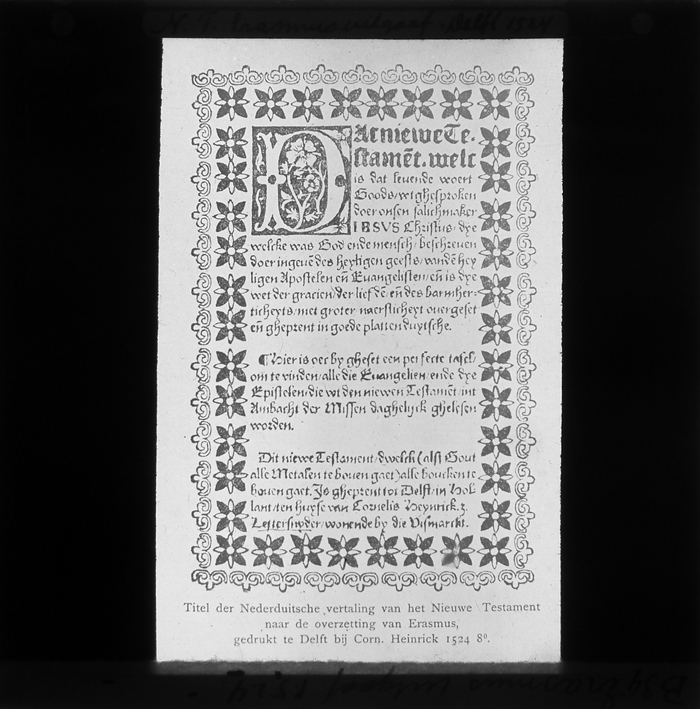 N. T. Erasmus uitgaaf. Delft 1524
DAt nieuwe Te-
stamēt. welc
is dat levende woert
Goods/wtghesproken
doer onsen salichmaker
IESVS Christus/dye
welcke was God ende mensch/bescreven
doer ingevē des heyligen geests/van dē hey
ligen Apostelen eñ Evangelisten/eñ is dye
wet der gracien/der liefdē/eñ des barmher-
ticheyts/met groter naersticheyt overgeset
eñ gheprent in goede platten duytsche.
¶Hier is oec by gheset een perfecte tafel/
om te vinden/alle die Evangelien/ende dye
Epistelen/die wt den niewen Testamēt int
Ambacht der Missen daghelyck ghelesen
worden.
Dit niewe Testament/dwelck (alst Gout
alle Metalen te boven gaet) alle boucken te
boven gaet. Is gheprent tot Delft/in Hol
lant/ten huyse van Cornelis Heynrick.z.
Lettersnyder/wonende by die Vismarkt.
Titel der Nederduitsche vertaling van het Nieuwe Testament
naar de overzetting van Erasmus,
gedrukt te Delft bij Corn. Heinrick 1524 8º.
Erasmus uitgaaf 1524